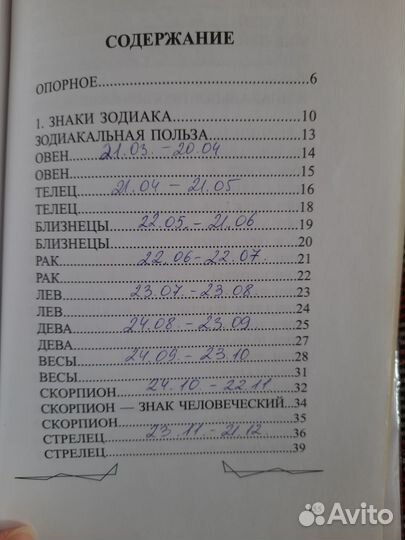 СОДЕРЖАНИЕ
ОПОРНОЕ.....6
1. ЗНАКИ ЗОДИАКА.....10
ЗОДИАКАЛЬНАЯ ПОЛЬЗА.....13
ОВЕН 21.03. – 20.04 14
ОВЕН.....15
ТЕЛЕЦ 21.04 – 21.05 16
ТЕЛЕЦ.....18
БЛИЗНЕЦЫ 22.05. – 21.06 19
БЛИЗНЕЦЫ.....20
РАК 22.06 – 22.07. 21
РАК.....22
ЛЕВ 23.07 – 23.08 23
ЛЕВ.....24
ДЕВА 24.08 – 23.09 25
ДЕВА.....27
ВЕСЫ 24.09 – 23.10 28
ВЕСЫ.....31
СКОРПИОН 24.10 – 22.11 32
СКОРПИОН — ЗНАК ЧЕЛОВЕЧЕСКИЙ.34
СКОРПИОН.....35
СТРЕЛЕЦ 23.11 – 21.12 36
СТРЕЛЕЦ.....39
Avito